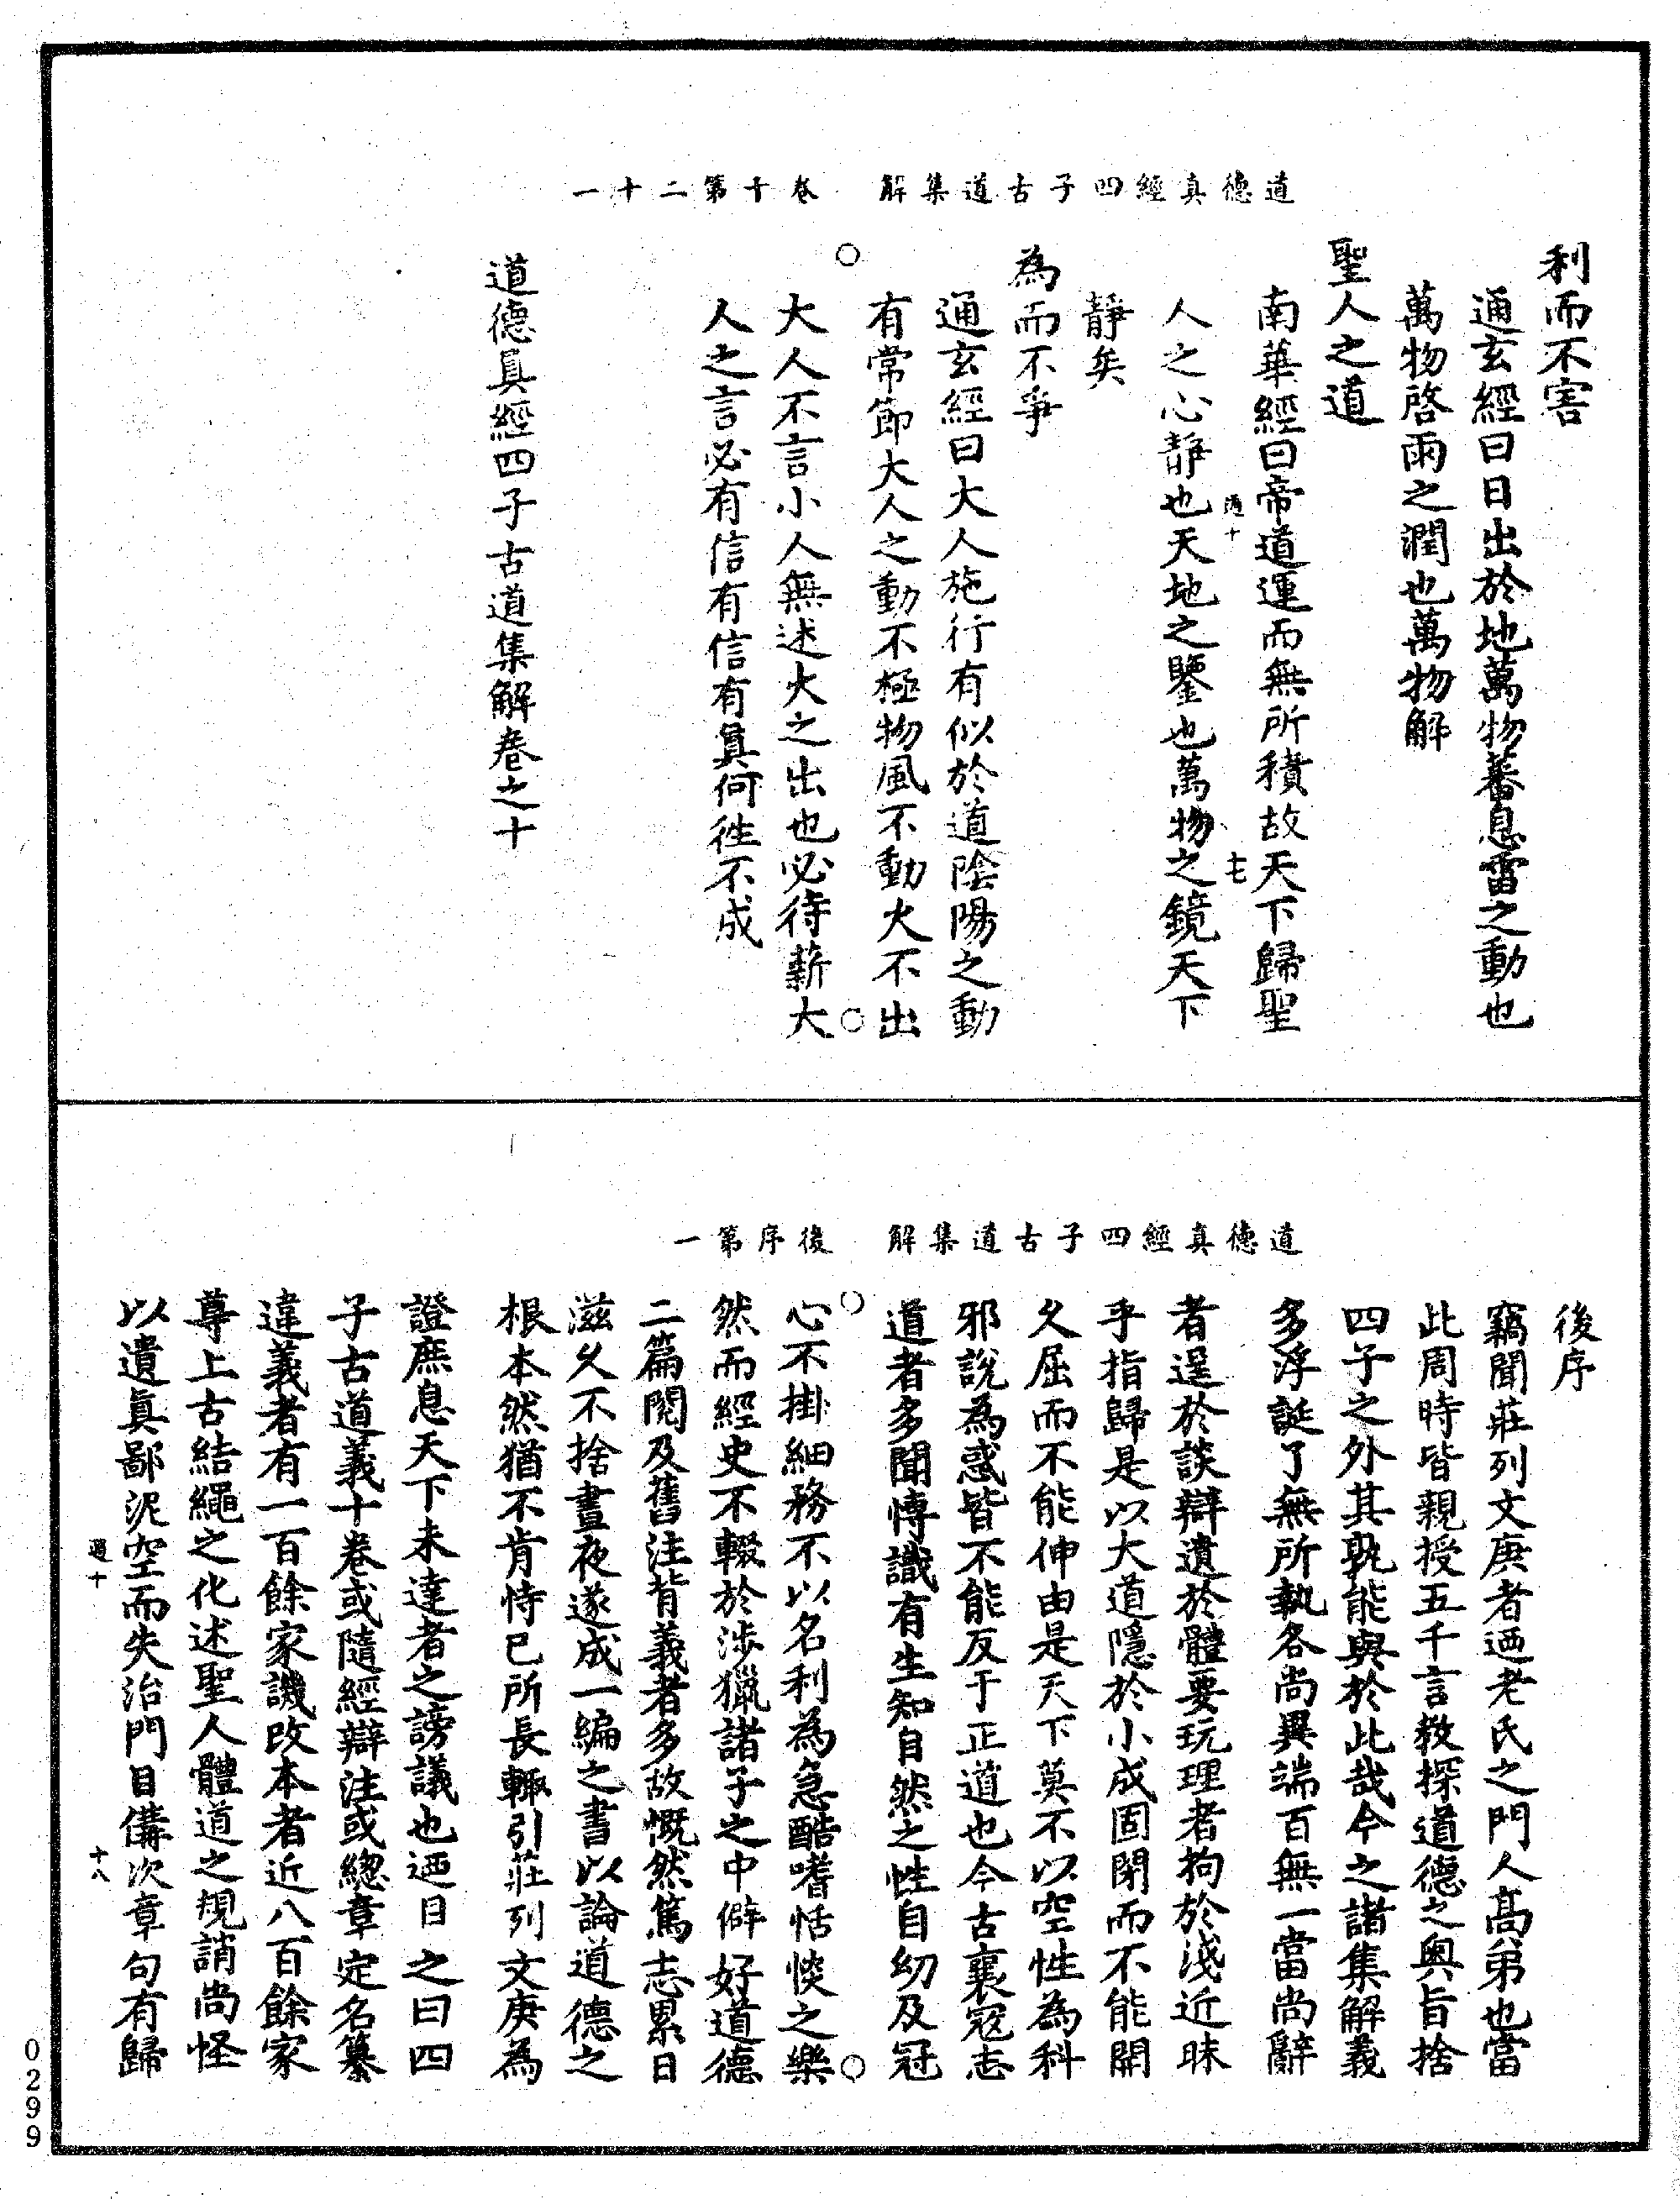 道德真經四子古道集解　卷十第二十一
利而不害
通玄經曰日出於地萬物蕃息雷之動也
萬物啓雨之潤也萬物解
聖人之道
南華經曰帝道運而無所積故天下歸聖
通十　十七
人之心靜也天地之鑒也萬物之鏡天下
靜矣
為而不爭
通玄經曰大人施行有似於道陰陽之動
有常節大人之動不極物風不動火不出
大人不言小人無述火之出也必待薪大
人之言必有信有信有真何徃不成
道德真經四子古道集解卷之十
道德真經四子古道集解　後序第一
後序
竊聞莊列文庚者迺老氏之門人高弟也當
此周時皆親授五千言教探道德之奧旨捨
四子之外其孰能與於此哉今之諸集解義
多浮誕了無所執各尚異端百無一當尚辭
者逞於談辯遺於體要玩理者拘於淺近昧
乎指歸是以大道隱於小成固閉而不能開
久屈而不能伸由是天下莫不以空性為科
邪說為惑皆不能反于正道也今古襄寇志
道者多聞愽識有生知自然之性自幼及冠
心不掛細務不以名利為急酷嗜恬惔之樂
然而經史不輟於涉獵諸子之中僻好道德
二篇閱及舊注背義者多故慨然篤志累日
滋久不捨晝夜遂成一編之書以論道德之
根本然猶不肯恃已所長輙引莊列文庚為
證庶息天下未達者之謗議也迺目之曰四
子古道義十卷或隨經辯注或緫章定名纂
違義者有一百餘家譏改本者近八百餘家
尊上古結繩之化述聖人體道之規誚尚怪
以遺真鄙泥空而失治門目備次章句有歸
通十　十八
0299